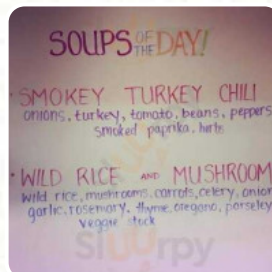 SOUPS OF THE DAY!
SMOKEY TURKEY CHILI
onions, turkey, tomato, beans, peppers
smoked paprika, herbs
WILD RICE AND MUSHROOM
wild rice, mushrooms, carrots, celery, onion
garlic, rosemary, thyme, oregano, parseley
veggie stock
Sluurpy